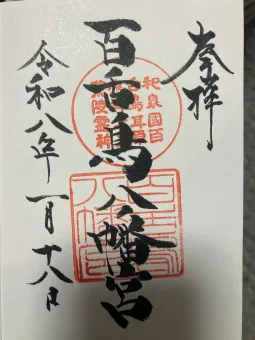 奉拝
百舌鳥八幡宮
令和八年 一月十八日
和泉國百
舌鳥耳原
陵霊神